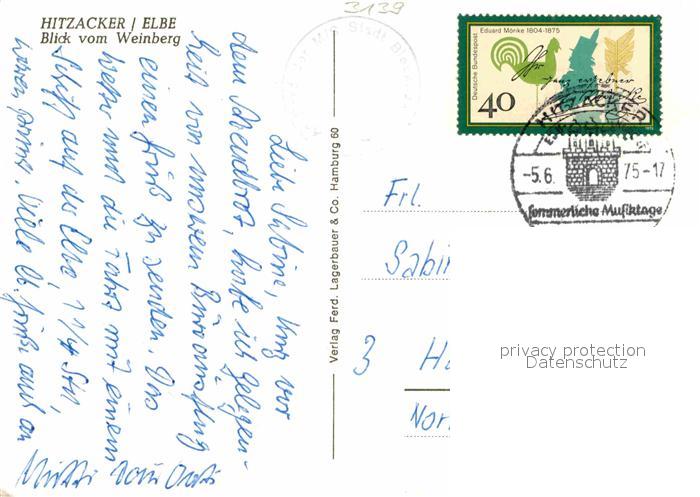 HITZACKER / ELBE
Blick vom Weinberg
3139
Eduard Mörike 1804-1875
Deutsche Bundespost
40
HITZACKER
-5.6. 75-17
Sommerliche Musiktage
Liebe Sabine, kurz vor
dem Abendbrot, habe ich Gelegen-
heit von unserem Büroausflug
einen Gruß zu senden. Das
Wetter und die Fahrt mit einem
Schiff auf der Elbe, 1 1/4 Std,
waren prima. Viele lb. Grüße auch an
Mutti
Verlag Ferd. Lagerbauer & Co. Hamburg 60
Frl.
Sabin
3 Ha
Nor
privacy protection
Datenschutz